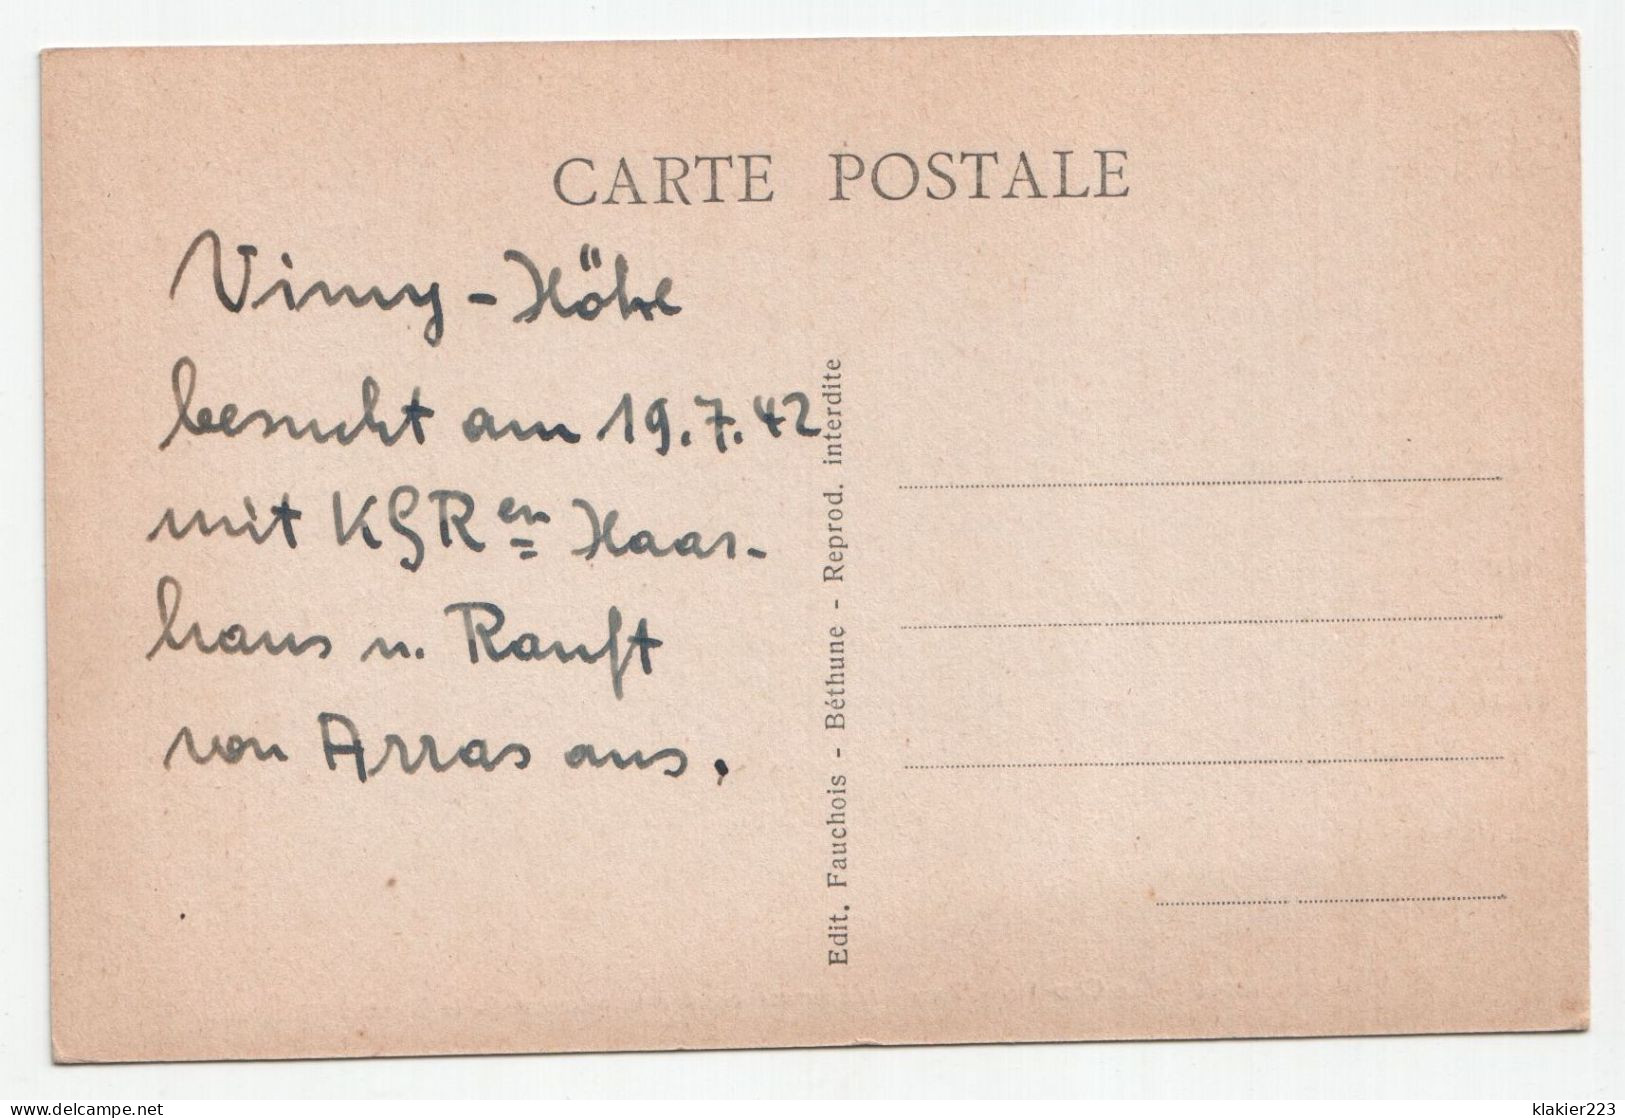 CARTE POSTALE
Vimy-Höhe
besucht am 19.7.42
mit KGRen Haar-
haus u. Ranft
von Arras aus.
Edit. Fauchois - Béthune - Reprod. interdite
klakier223